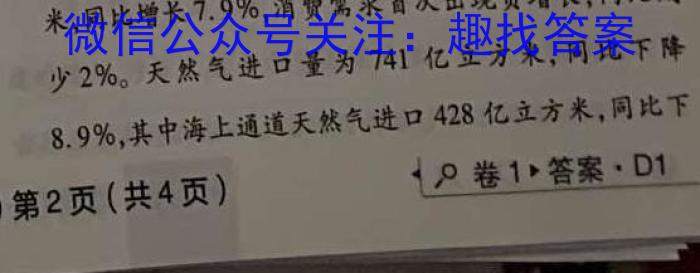 米,同比增长7.9%,消费需求首次出现负增长,
微信公众号关注：趣找答案
少2%。天然气进口量为741亿立方米,同比下降
8.9%,其中海上通道天然气进口428亿立方米,同比下
第2页(共4页)
卷1▶答案·D1